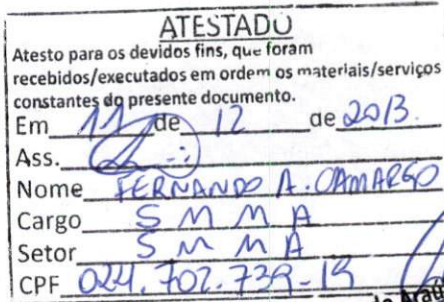 ATESTADO
Atesto para os devidos fins, que foram
recebidos/executados em ordem os materiais/serviços
constantes do presente documento.
Em 11 de 12 de 2013.
Ass.
Nome FERNANDO A. CAMARGO
Cargo S M M A
Setor S M M A
CPF 024.702.739-19